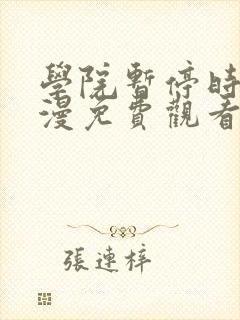 學院暫停時
漫免費觀看
張連梓